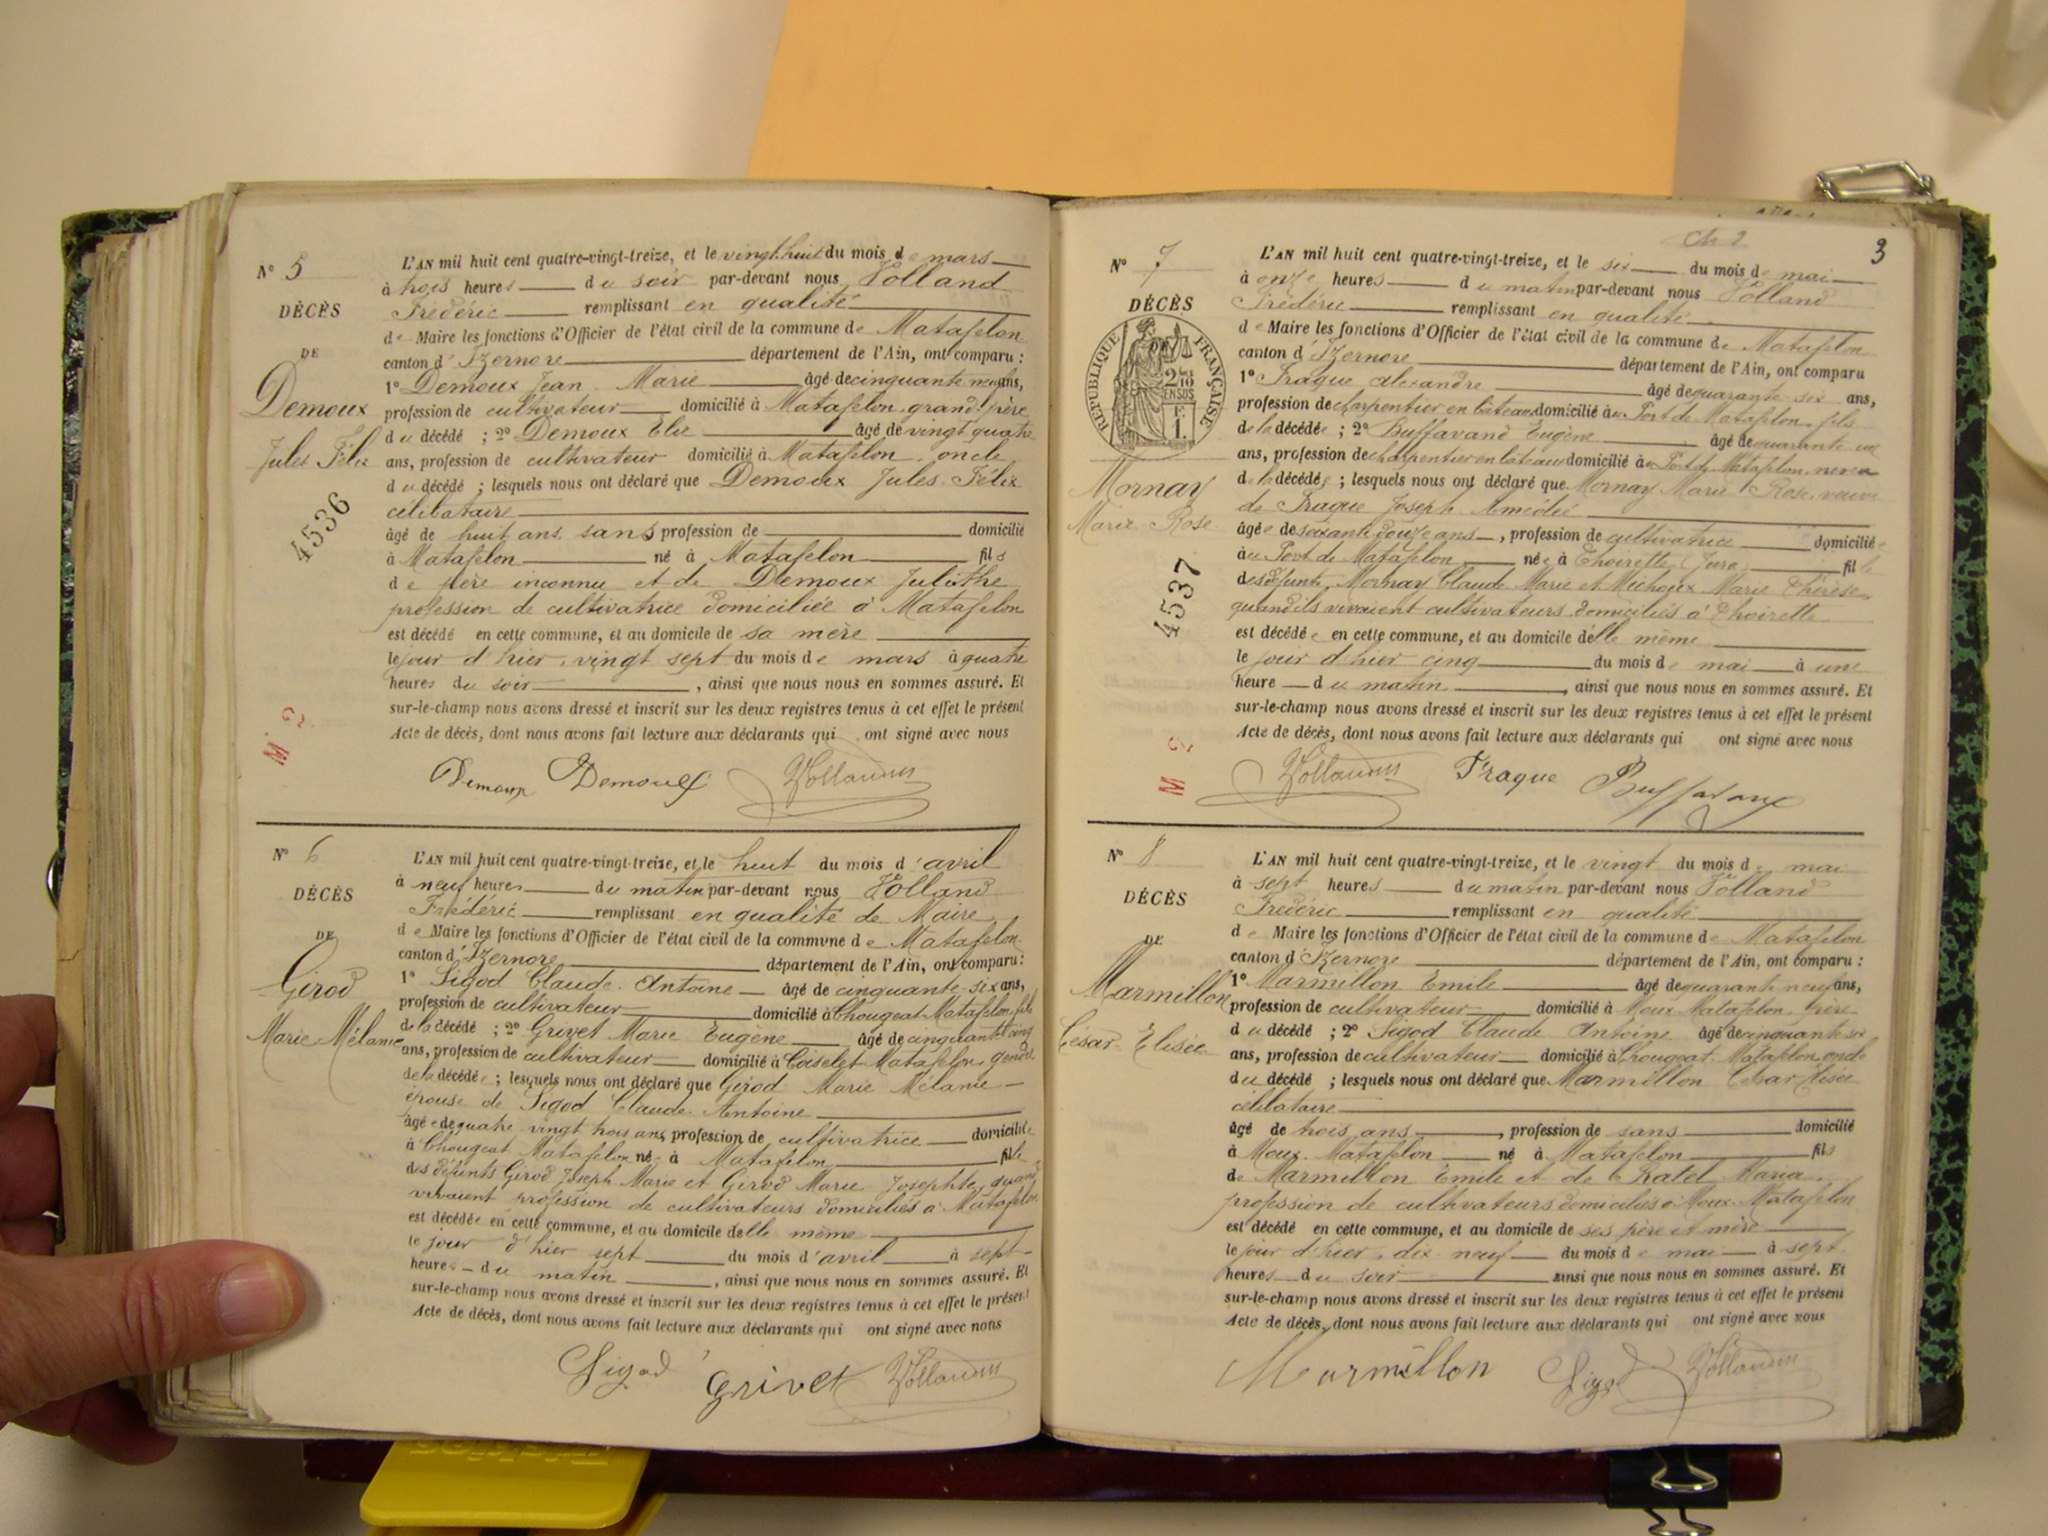 Nº 5
DÉCÈS
DE
Demoux
Jules Félix
4536
M. 2
L'AN mil huit cent quatre-vingt-treize, et le vingt huit du mois de mars
à trois heures du soir par-devant nous Volland
Frédéric remplissant en qualité
de Maire les fonctions d'Officier de l'état civil de la commune de Matafelon
canton d'Izernore département de l'Ain, ont comparu :
1º Demoux Jean Marie âgé de cinquante neuf ans,
profession de cultivateur domicilié à Matafelon, grand père
du décédé ; 2º Demoux Elie âgé de vingt quatre
ans, profession de cultivateur domicilié à Matafelon, oncle
du décédé ; lesquels nous ont déclaré que Demoux Jules Félix
célibataire
âgé de huit ans, sans profession de domicilié
à Matafelon né à Matafelon fils
de père inconnu et de Demoux Julithe
profession de cultivatrice domiciliée à Matafelon
est décédé en cette commune, et au domicile de sa mère
le jour d'hier, vingt sept du mois de mars à quatre
heures du soir , ainsi que nous nous en sommes assuré. Et
sur-le-champ nous avons dressé et inscrit sur les deux registres tenus à cet effet le présent
Acte de décès, dont nous avons fait lecture aux déclarants qui ont signé avec nous
Demoux Demoux Vollandus
Nº 6
DÉCÈS
DE
Girod
Marie Mélanie
L'AN mil huit cent quatre-vingt-treize, et le huit du mois d'avril
à neuf heures du matin par-devant nous Volland
Frédéric remplissant en qualité de Maire
de Maire les fonctions d'Officier de l'état civil de la commune de Matafelon
canton d'Izernore département de l'Ain, ont comparu :
1º Sigod Claude Antoine âgé de cinquante six ans,
profession de cultivateur domicilié à Chougeat Matafelon, fils
de la décédé ; 2º Grivet Marie Eugène âgé de cinquante cinq
ans, profession de cultivateur domicilié à Coiselet Matafelon, gendre
de la décédée ; lesquels nous ont déclaré que Girod Marie Mélanie
épouse de Sigod Claude Antoine
âgée de quatre vingt trois ans, profession de cultivatrice domiciliée
à Chougeat Matafelon née à Matafelon fille
des défunts Girod Joseph Marie et Girod Marie Josephte, quand
vivaient profession de cultivateurs domiciliés à Matafelon
est décédée en cette commune, et au domicile delle même
le jour d'hier sept du mois d'avril à sept
heures du matin , ainsi que nous nous en sommes assuré. Et
sur-le-champ nous avons dressé et inscrit sur les deux registres tenus à cet effet le présent
Acte de décès, dont nous avons fait lecture aux déclarants qui ont signé avec nous
Sigod Grivet Vollandus
3
Nº 7
DÉCÈS
RÉPUBLIQUE FRANÇAISE
2 10
EN SUS
1 F.
Mornay
Marie Rose
4537
M 2
L'AN mil huit cent quatre-vingt-treize, et le six du mois de mai
à onze heures du matin par-devant nous Volland
Frédéric remplissant en qualité
de Maire les fonctions d'Officier de l'état civil de la commune de Matafelon
canton d'Izernore département de l'Ain, ont comparu
1º Fraque Alexandre âgé de quarante six ans,
profession de charpentier en bateau domicilié au Port de Matafelon, fils
de la décédée ; 2º Buffavand Eugène âgé de quarante un
ans, profession de charpentier en bateau domicilié au Port de Matafelon, neveu
de la décédée ; lesquels nous ont déclaré que Mornay Marie Rose, veuve
de Fraque Joseph Amédée
âgée de soixante douze ans , profession de cultivatrice domiciliée
au Port de Matafelon née à Thoirette (Jura) fille
des défunts Mornay Claude Marie et Michoux Marie Thérèse
quand ils vivaient cultivateurs domiciliés à Thoirette
est décédée en cette commune, et au domicile delle même
le jour d'hier cinq du mois de mai à une
heure du matin , ainsi que nous nous en sommes assuré. Et
sur-le-champ nous avons dressé et inscrit sur les deux registres tenus à cet effet le présent
Acte de décès, dont nous avons fait lecture aux déclarants qui ont signé avec nous
Vollandus Fraque Buffavand
Nº 8
DÉCÈS
DE
Marmillon
César Elisée
L'AN mil huit cent quatre-vingt-treize, et le vingt du mois de mai
à sept heures du matin par-devant nous Volland
Frédéric remplissant en qualité
de Maire les fonctions d'Officier de l'état civil de la commune de Matafelon
canton d'Izernore département de l'Ain, ont comparu :
1º Marmillon Emile âgé de quarante neuf ans,
profession de cultivateur domicilié à Moux Matafelon, père
du décédé ; 2º Sigod Claude Antoine âgé de cinquante six
ans, profession de cultivateur domicilié à Chougeat Matafelon, oncle
du décédé ; lesquels nous ont déclaré que Marmillon César Elisée
célibataire
âgé de trois ans , profession de sans domicilié
à Moux Matafelon né à Matafelon fils
de Marmillon Emile et de Ratel Maria
profession de cultivateurs domiciliés à Moux Matafelon
est décédé en cette commune, et au domicile de ses père et mère
le jour d'hier, dix neuf du mois de mai à sept
heures du soir ainsi que nous nous en sommes assuré. Et
sur-le-champ nous avons dressé et inscrit sur les deux registres tenus à cet effet le présent
Acte de décès, dont nous avons fait lecture aux déclarants qui ont signé avec nous
Marmillon Sigod Vollandus